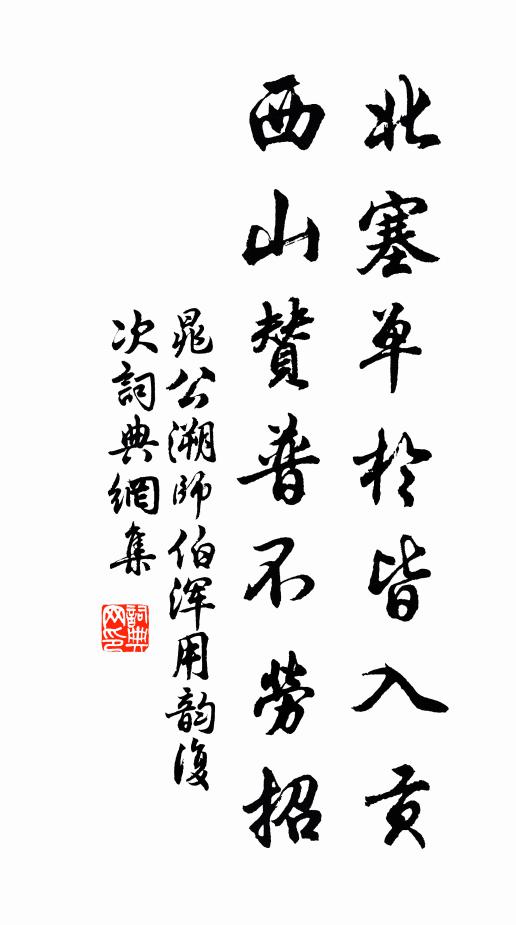 北塞单於皆入贡
西山贊普不勞招
晁公溯師伯浑用韵復
次詞典網集
詞典网印